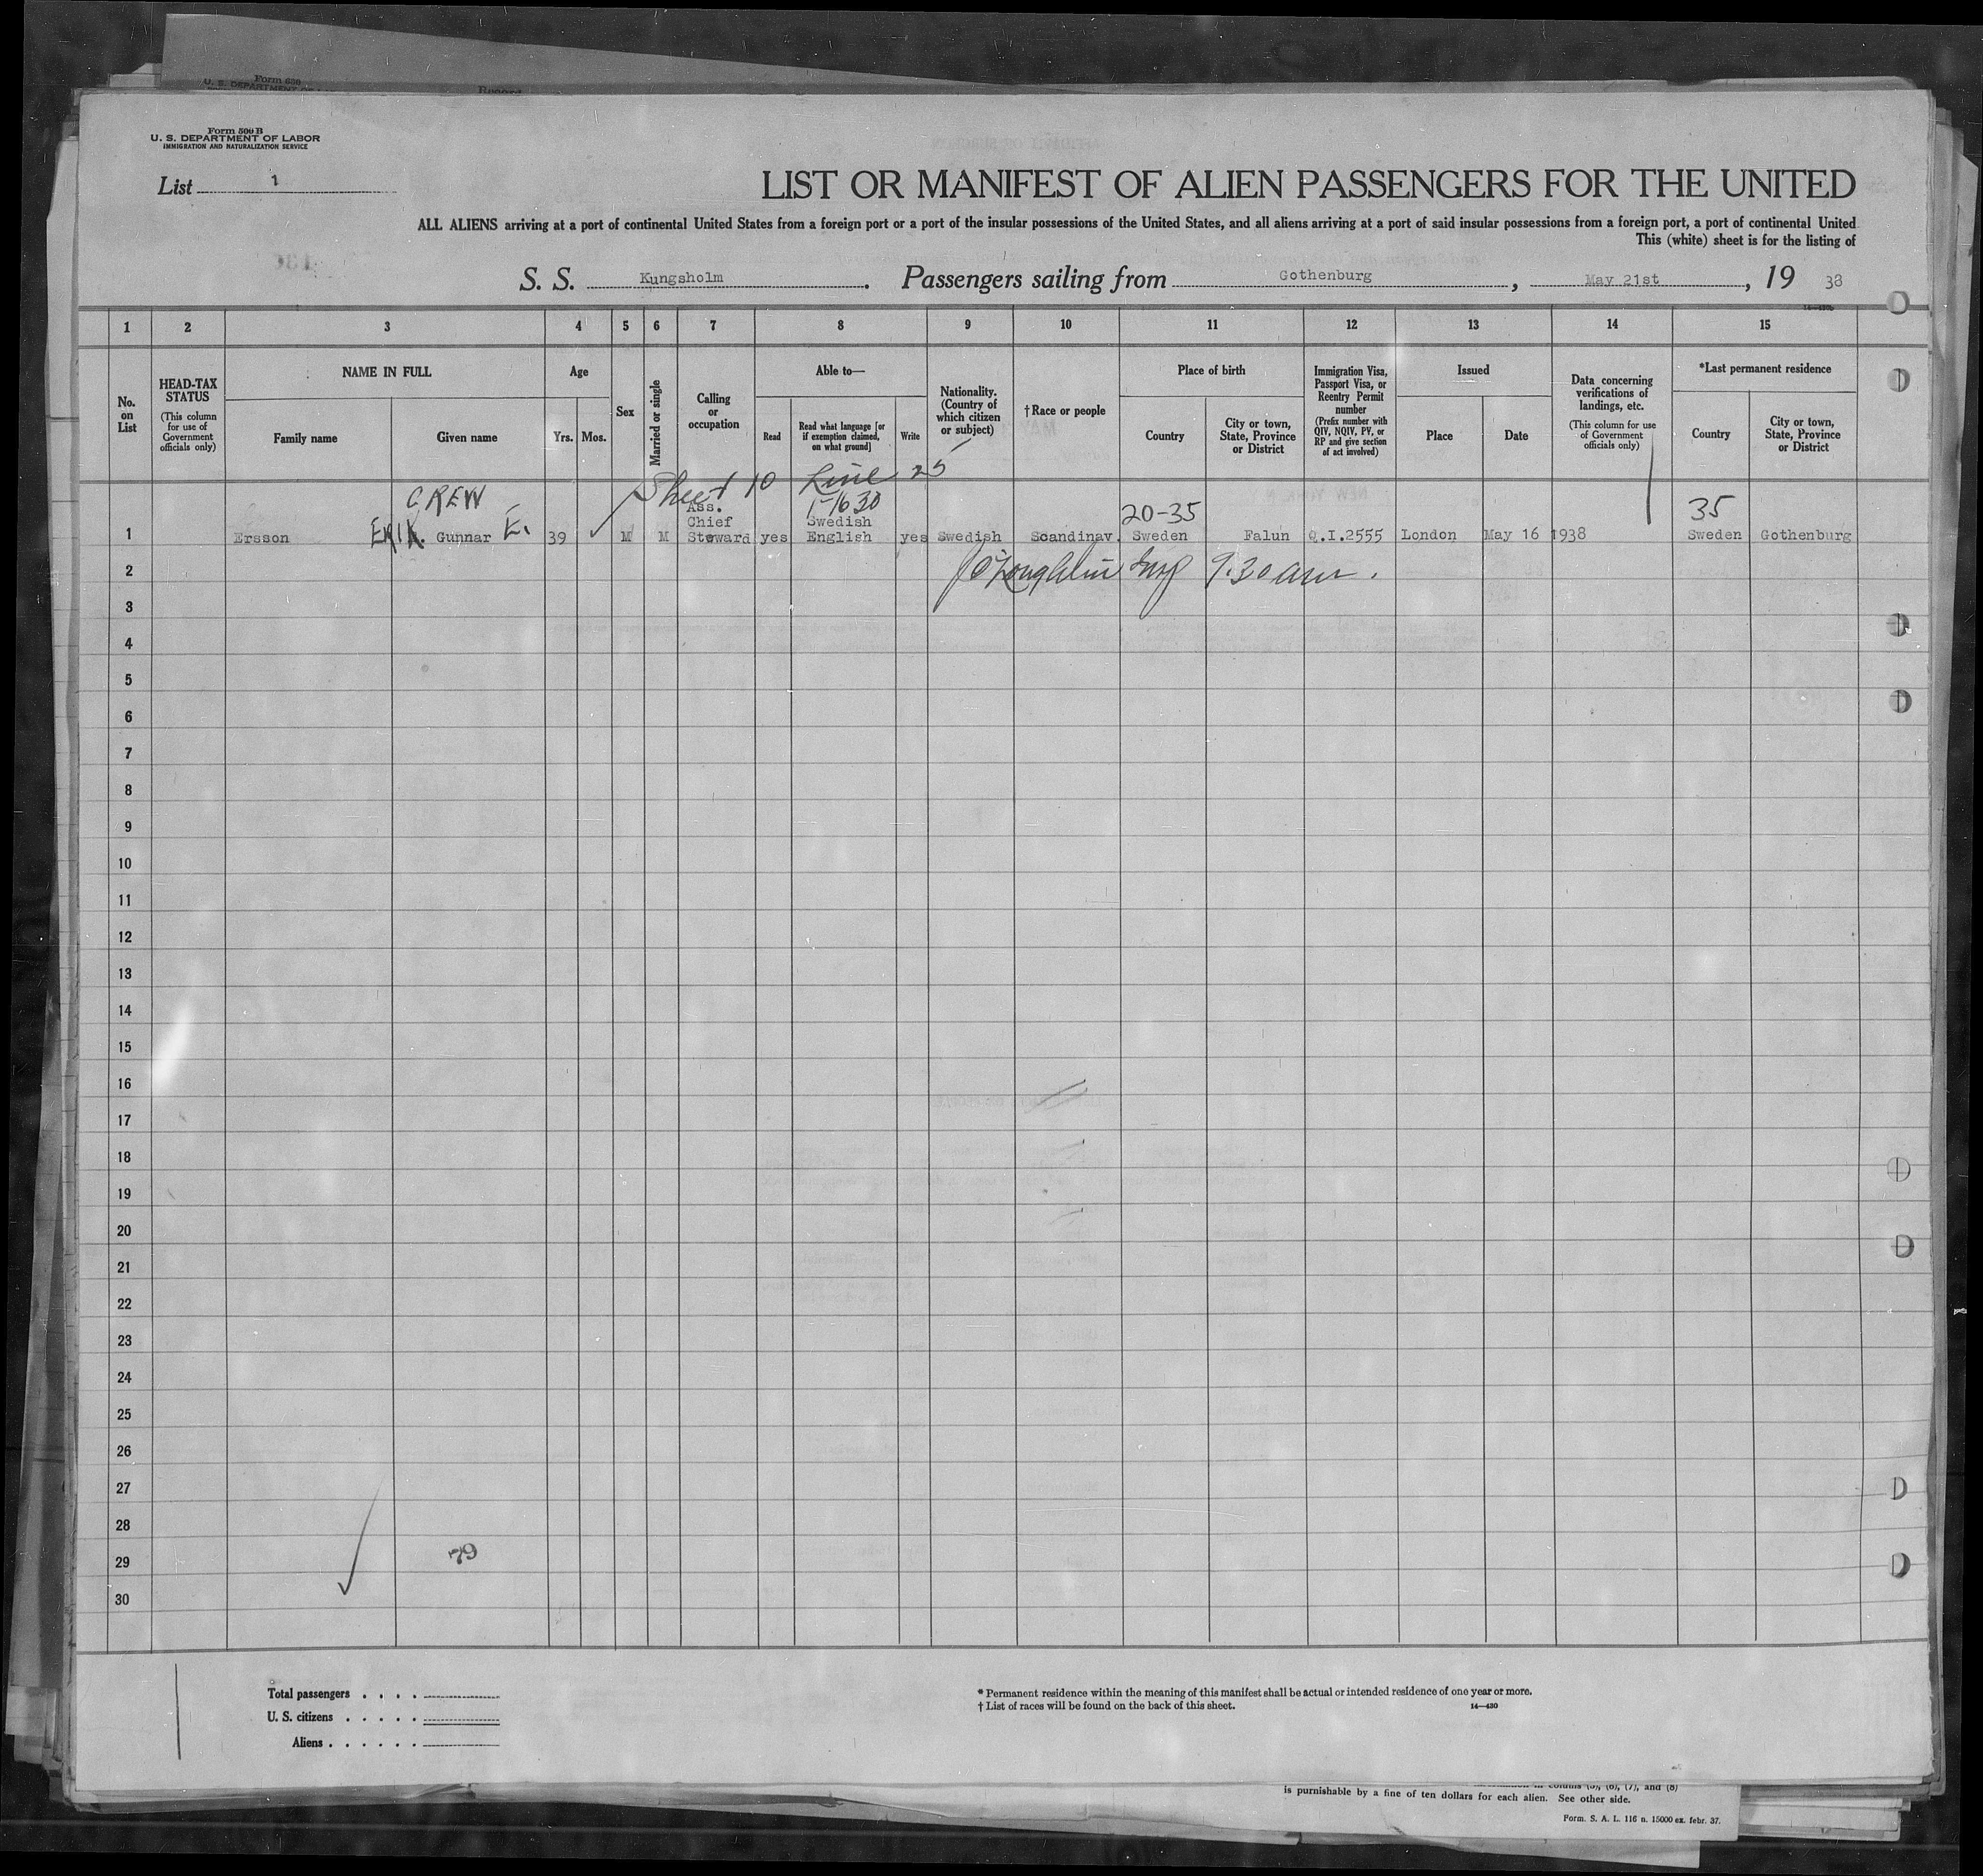 Form 500 B
U. S. DEPARTMENT OF LABOR
IMMIGRATION AND NATURALIZATION SERVICE
List 1
LIST OR MANIFEST OF ALIEN PASSENGERS FOR THE UNITED
ALL ALIENS arriving at a port of continental United States from a foreign port or a port of the insular possessions of the United States, and all aliens arriving at a port of said insular possessions from a foreign port, a port of continental United
This (white) sheet is for the listing of
S. S. Kungsholm. Passengers sailing from Gothenburg, May 21st, 19 38
1 2 3 4 5 6 7 8 9 10 11 12 13 14 15
No. on List
HEAD-TAX STATUS
(This column for use of Government officials only)
NAME IN FULL
Family name
Given name
Age
Yrs. Mos.
Sex
Married or single
Calling or occupation
Able to—
Read
Read what language [or if exemption claimed, on what ground]
Write
Nationality. (Country of which citizen or subject)
† Race or people
Place of birth
Country
City or town, State, Province or District
Immigration Visa, Passport Visa, or Reentry Permit number
(Prefix number with QIV, NQIV, PV, or RP and give section of act involved)
Issued
Place
Date
Data concerning verifications of landings, etc.
(This column for use of Government officials only)
*Last permanent residence
Country
City or town, State, Province or District
Sheet 10 Line 25
CREW
1-1630
20-35
35
1 Ersson ERIK. Gunnar E. 39 M M Ass. Chief Steward yes Swedish English yes Swedish Scandinav. Sweden Falun Q.I.2555 London May 16 1938 Sweden Gothenburg
2 J O'Loughlin Insp 9.30 am.
3
4
5
6
7
8
9
10
11
12
13
14
15
16
17
18
19
20
21
22
23
24
25
26
27
28
29 79
30
Total passengers
U. S. citizens
Aliens
* Permanent residence within the meaning of this manifest shall be actual or intended residence of one year or more.
† List of races will be found on the back of this sheet.
14—430
is purnishable by a fine of ten dollars for each alien. See other side.
Form. S. A. L. 116 n. 15000 ex. febr. 37.